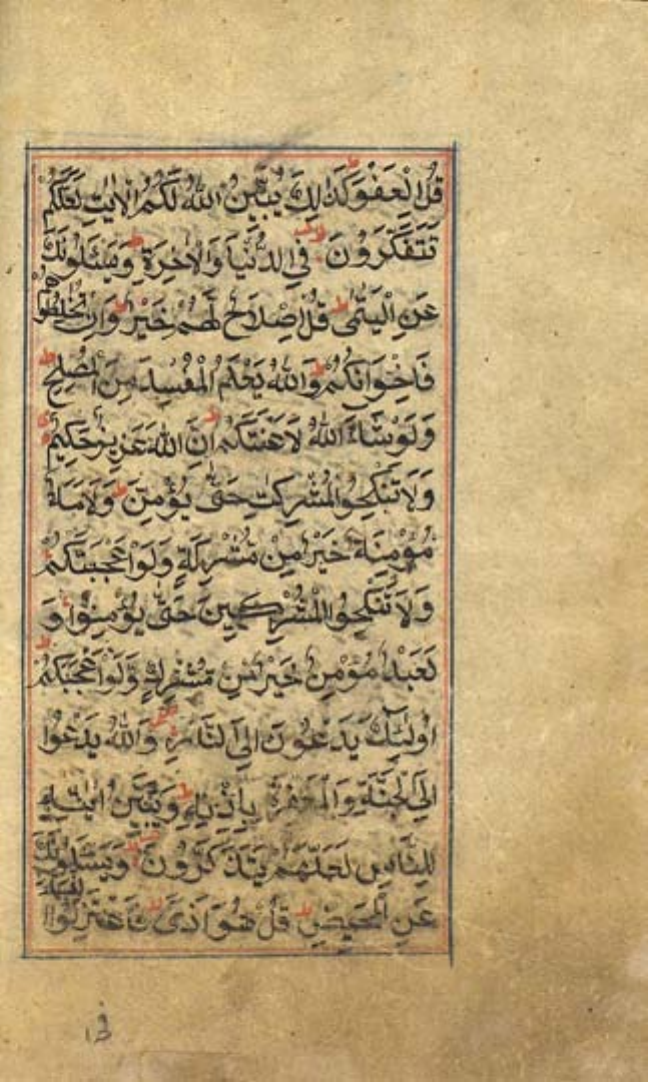 قُلِ الْعَفْوَ كَذٰلِكَ يُبَيِّنُ اللّٰهُ لَكُمُ الْاٰيٰتِ لَعَلَّكُمْ
تَتَفَكَّرُوْنَ فِي الدُّنْيَا وَالْاٰخِرَةِ وَيَسْئَلُوْنَكَ
عَنِ الْيَتٰمٰى قُلْ اِصْلَاحٌ لَّهُمْ خَيْرٌ وَاِنْ تُخَالِطُوْهُمْ
فَاِخْوَانُكُمْ وَاللّٰهُ يَعْلَمُ الْمُفْسِدَ مِنَ الْمُصْلِحِ
وَلَوْ شَاءَ اللّٰهُ لَاَعْنَتَكُمْ اِنَّ اللّٰهَ عَزِيْزٌ حَكِيْمٌ
وَلَا تَنْكِحُوا الْمُشْرِكٰتِ حَتّٰى يُؤْمِنَّ وَلَاَمَةٌ
مُؤْمِنَةٌ خَيْرٌ مِنْ مُشْرِكَةٍ وَلَوْ اَعْجَبَتْكُمْ
وَلَا تُنْكِحُوا الْمُشْرِكِيْنَ حَتّٰى يُؤْمِنُوْا وَ
لَعَبْدٌ مُؤْمِنٌ خَيْرٌ مِنْ مُشْرِكٍ وَلَوْ اَعْجَبَكُمْ
اُولٰئِكَ يَدْعُوْنَ اِلَى النَّارِ وَاللّٰهُ يَدْعُوْا
اِلَى الْجَنَّةِ وَالْمَغْفِرَةِ بِاِذْنِهٖ وَيُبَيِّنُ اٰيٰتِهٖ
لِلنَّاسِ لَعَلَّهُمْ يَتَذَكَّرُوْنَ وَيَسْئَلُوْنَكَ
عَنِ الْمَحِيْضِ قُلْ هُوَ اَذًى فَاعْتَزِلُوا النِّسَاءَ
فى